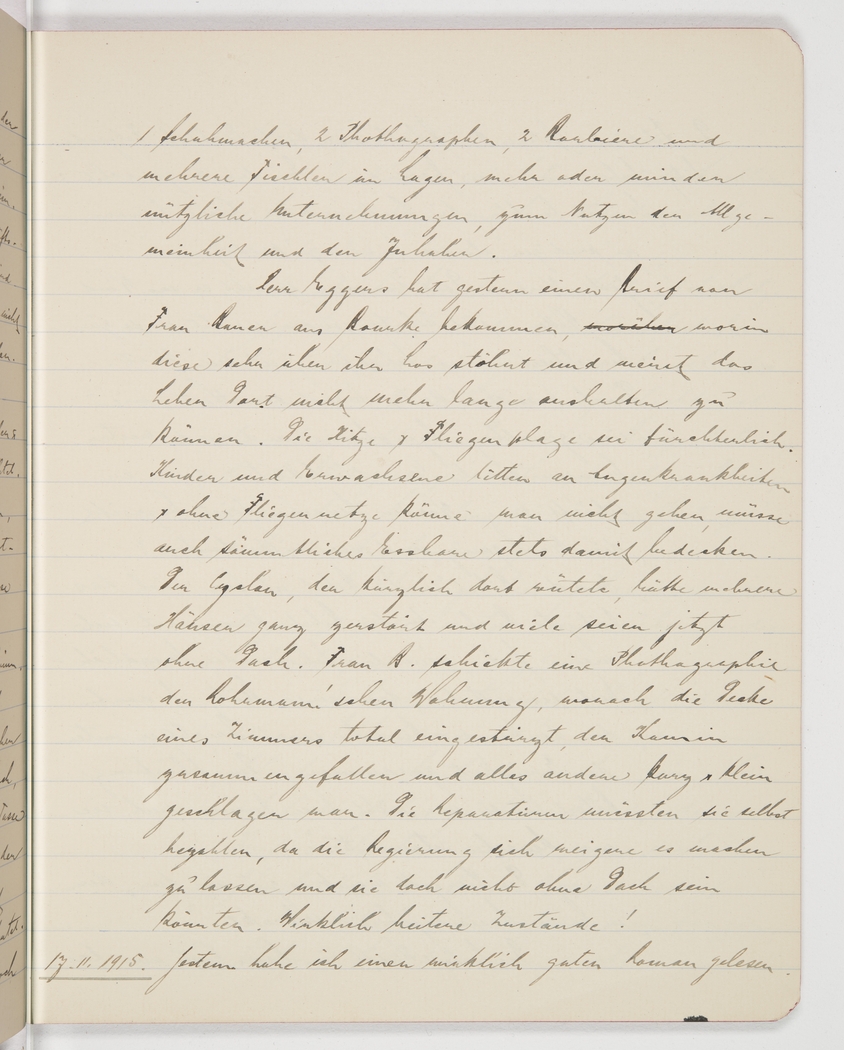 1 Schuhmacher, 2 Phothographen, 2 Barbiere und
mehrere Tischler im Lager, mehr oder minder
nützliche Unternehmungen, zum Nutzen der Allge-
meinheit und der Inhaber.
Herr Eggers hat gestern einen Brief von
Frau Bauer aus Bourke bekommen, worüber worin
diese sehr über ihr Los stöhnt und meint das
Leben dort nicht mehr lange aushalten zu
können. Die Hitze & Fliegenplage sei fürchterlich.
Kinder und Erwachsene litten an Augenkrankheiten
& ohne Fliegennetze könne man nicht gehen, müsse
auch sämmtliches Essbare stets damit bedecken.
Der Cyclon, der kürzlich dort wütete, hätte mehrere
Häuser ganz zerstört und viele seien jetzt
ohne Dach. Frau B. schickte eine Phothographie
der Lohrmann'schen Wohnung, wonach die Decke
eines Zimmers total eingestürzt, der Kamin
zusammengefallen und alles andere kurz & klein
geschlagen war. Die Reparaturen müssten sie selbst
bezahlen, da die Regierung sich weigere es machen
zu lassen und sie doch nicht ohne Dach sein
könnten. Wirklich heitere Zustände!
17.11.1915. Gestern habe ich einen wirklich guten Roman gelesen.